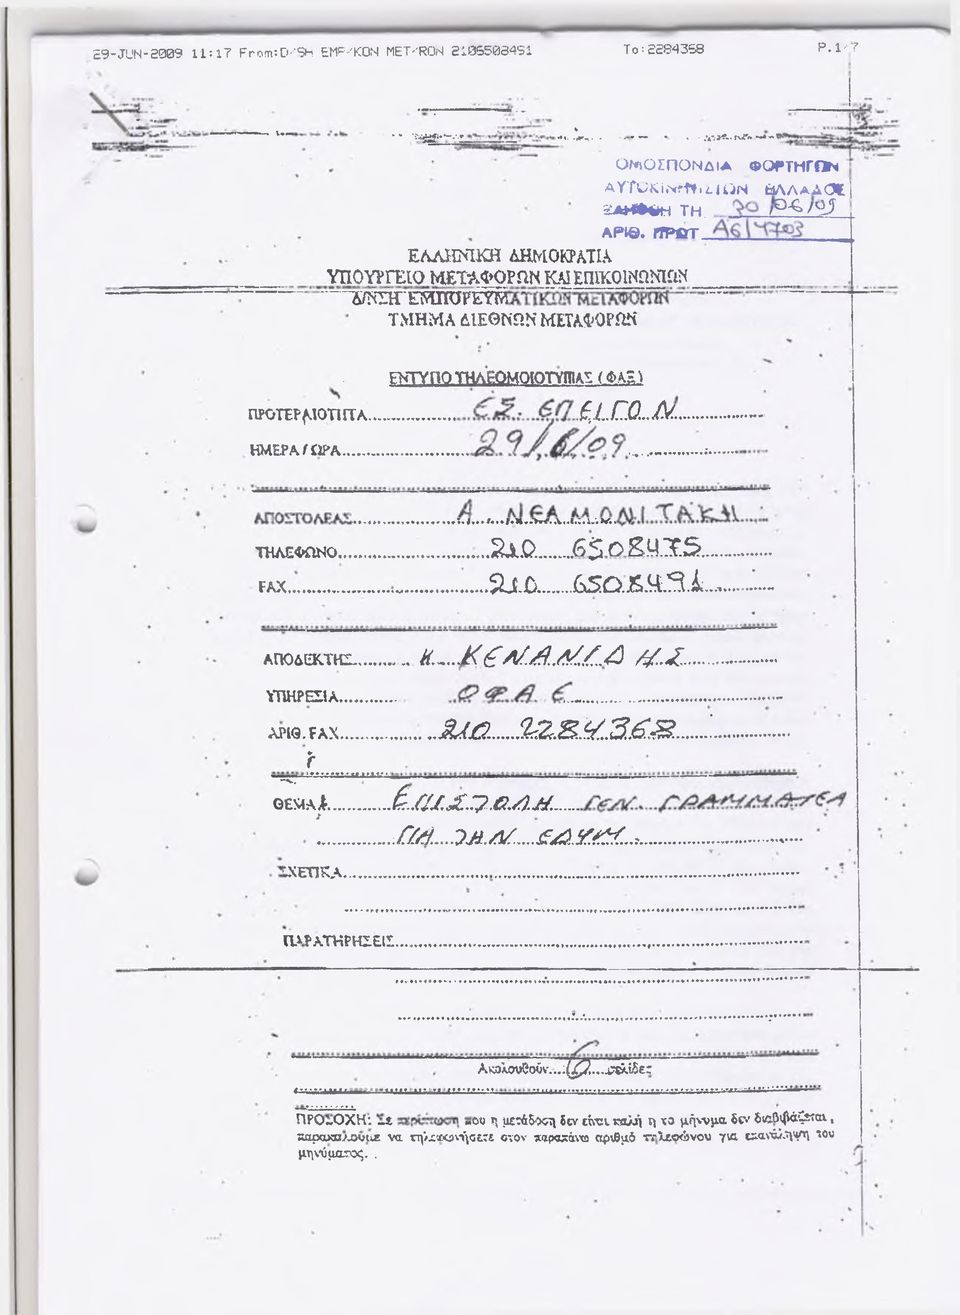 29-JUN-2009 11:17 From:D/SH EMF/KON MET/RON 2106508491 To:2284368 P.1/7
ΟΜΟΣΠΟΝΔΙΑ ΦΟΡΤΗΓΩΝ
ΑΥΤΟΚΙΝΗΤΙΣΤΩΝ ΕΛΛΑΔΟΣ
ΤΗ 30/06/09
ΑΡΙΘ. ΠΡΩΤ Α6/4703
ΕΛΛΗΝΙΚΗ ΔΗΜΟΚΡΑΤΙΑ
ΥΠΟΥΡΓΕΙΟ ΜΕΤΑΦΟΡΩΝ ΚΑΙ ΕΠΙΚΟΙΝΩΝΙΩΝ
Δ/ΝΣΗ ΕΜΠΟΡΕΥΜΑΤΙΚΩΝ ΜΕΤΑΦΟΡΩΝ
ΤΜΗΜΑ ΔΙΕΘΝΩΝ ΜΕΤΑΦΟΡΩΝ
ΕΝΤΥΠΟ ΤΗΛΕΟΜΟΙΟΤΥΠΙΑΣ (ΦΑΞ)
ΠΡΟΤΕΡΑΙΟΤΗΤΑ.......... ΕΞ. ΕΠΕΙΓΟΝ
ΗΜΕΡΑ / ΩΡΑ.......... 29/6/09
ΑΠΟΣΤΟΛΕΑΣ.......... Α. ΝΕΑΜΟΝΙΤΑΚΗ
ΤΗΛΕΦΩΝΟ.......... 210 6508475
FAX.......... 210 6508491
ΑΠΟΔΕΚΤΗΣ.......... Κ. ΚΕΝΑΝΙΔΗΣ
ΥΠΗΡΕΣΙΑ.......... ΟΦΑΕ
ΑΡΙΘ. FAX.......... 210 2284368
ΘΕΜΑ.......... ΕΠΙΣΤΟΛΗ ΓΕΝ. ΓΡΑΜΜΑΤΕΑ
ΓΙΑ ΤΗΝ ΕΔΥΜ
ΣΧΕΤΙΚΑ..........
ΠΑΡΑΤΗΡΗΣΕΙΣ..........
Ακολουθούν....6....σελίδες
ΠΡΟΣΟΧΗ: Σε περίπτωση που η μετάδοση δεν είναι καλή η το μήνυμα δεν διαβιβάζεται,
παρακαλούμε να τηλεφωνήσετε στον παραπάνω αριθμό τηλεφώνου για επανάληψη του
μηνύματος.